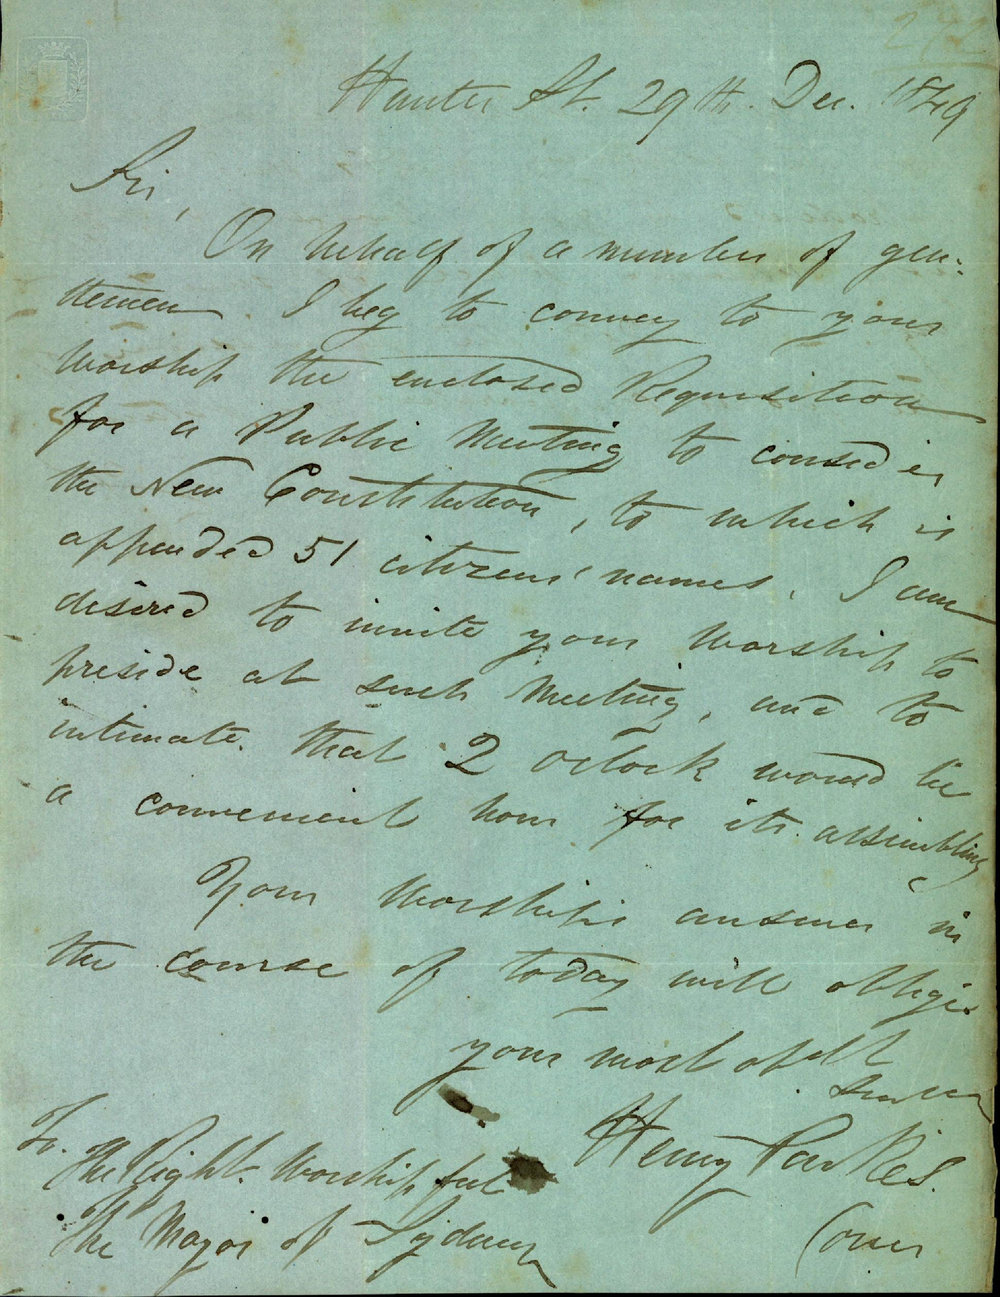 272
Hunter St. 29th. Dec. 1849
Sir,
On behalf of a number of gen-
tlemen I beg to convey to your
Worship the enclosed Requisition
for a Public Meeting to consider
the New Constitution, to which is
appended 51 citizens' names. I am
desired to invite your Worship to
preside at such Meeting, and to
intimate that 2 Oclock would be
a convenient hour for its assembling
Your Worship's answer in
the course of today will oblige
your most obdt
Servan
Henry Parkes.
To.
The Right Worshipful
The Mayor of Sydney